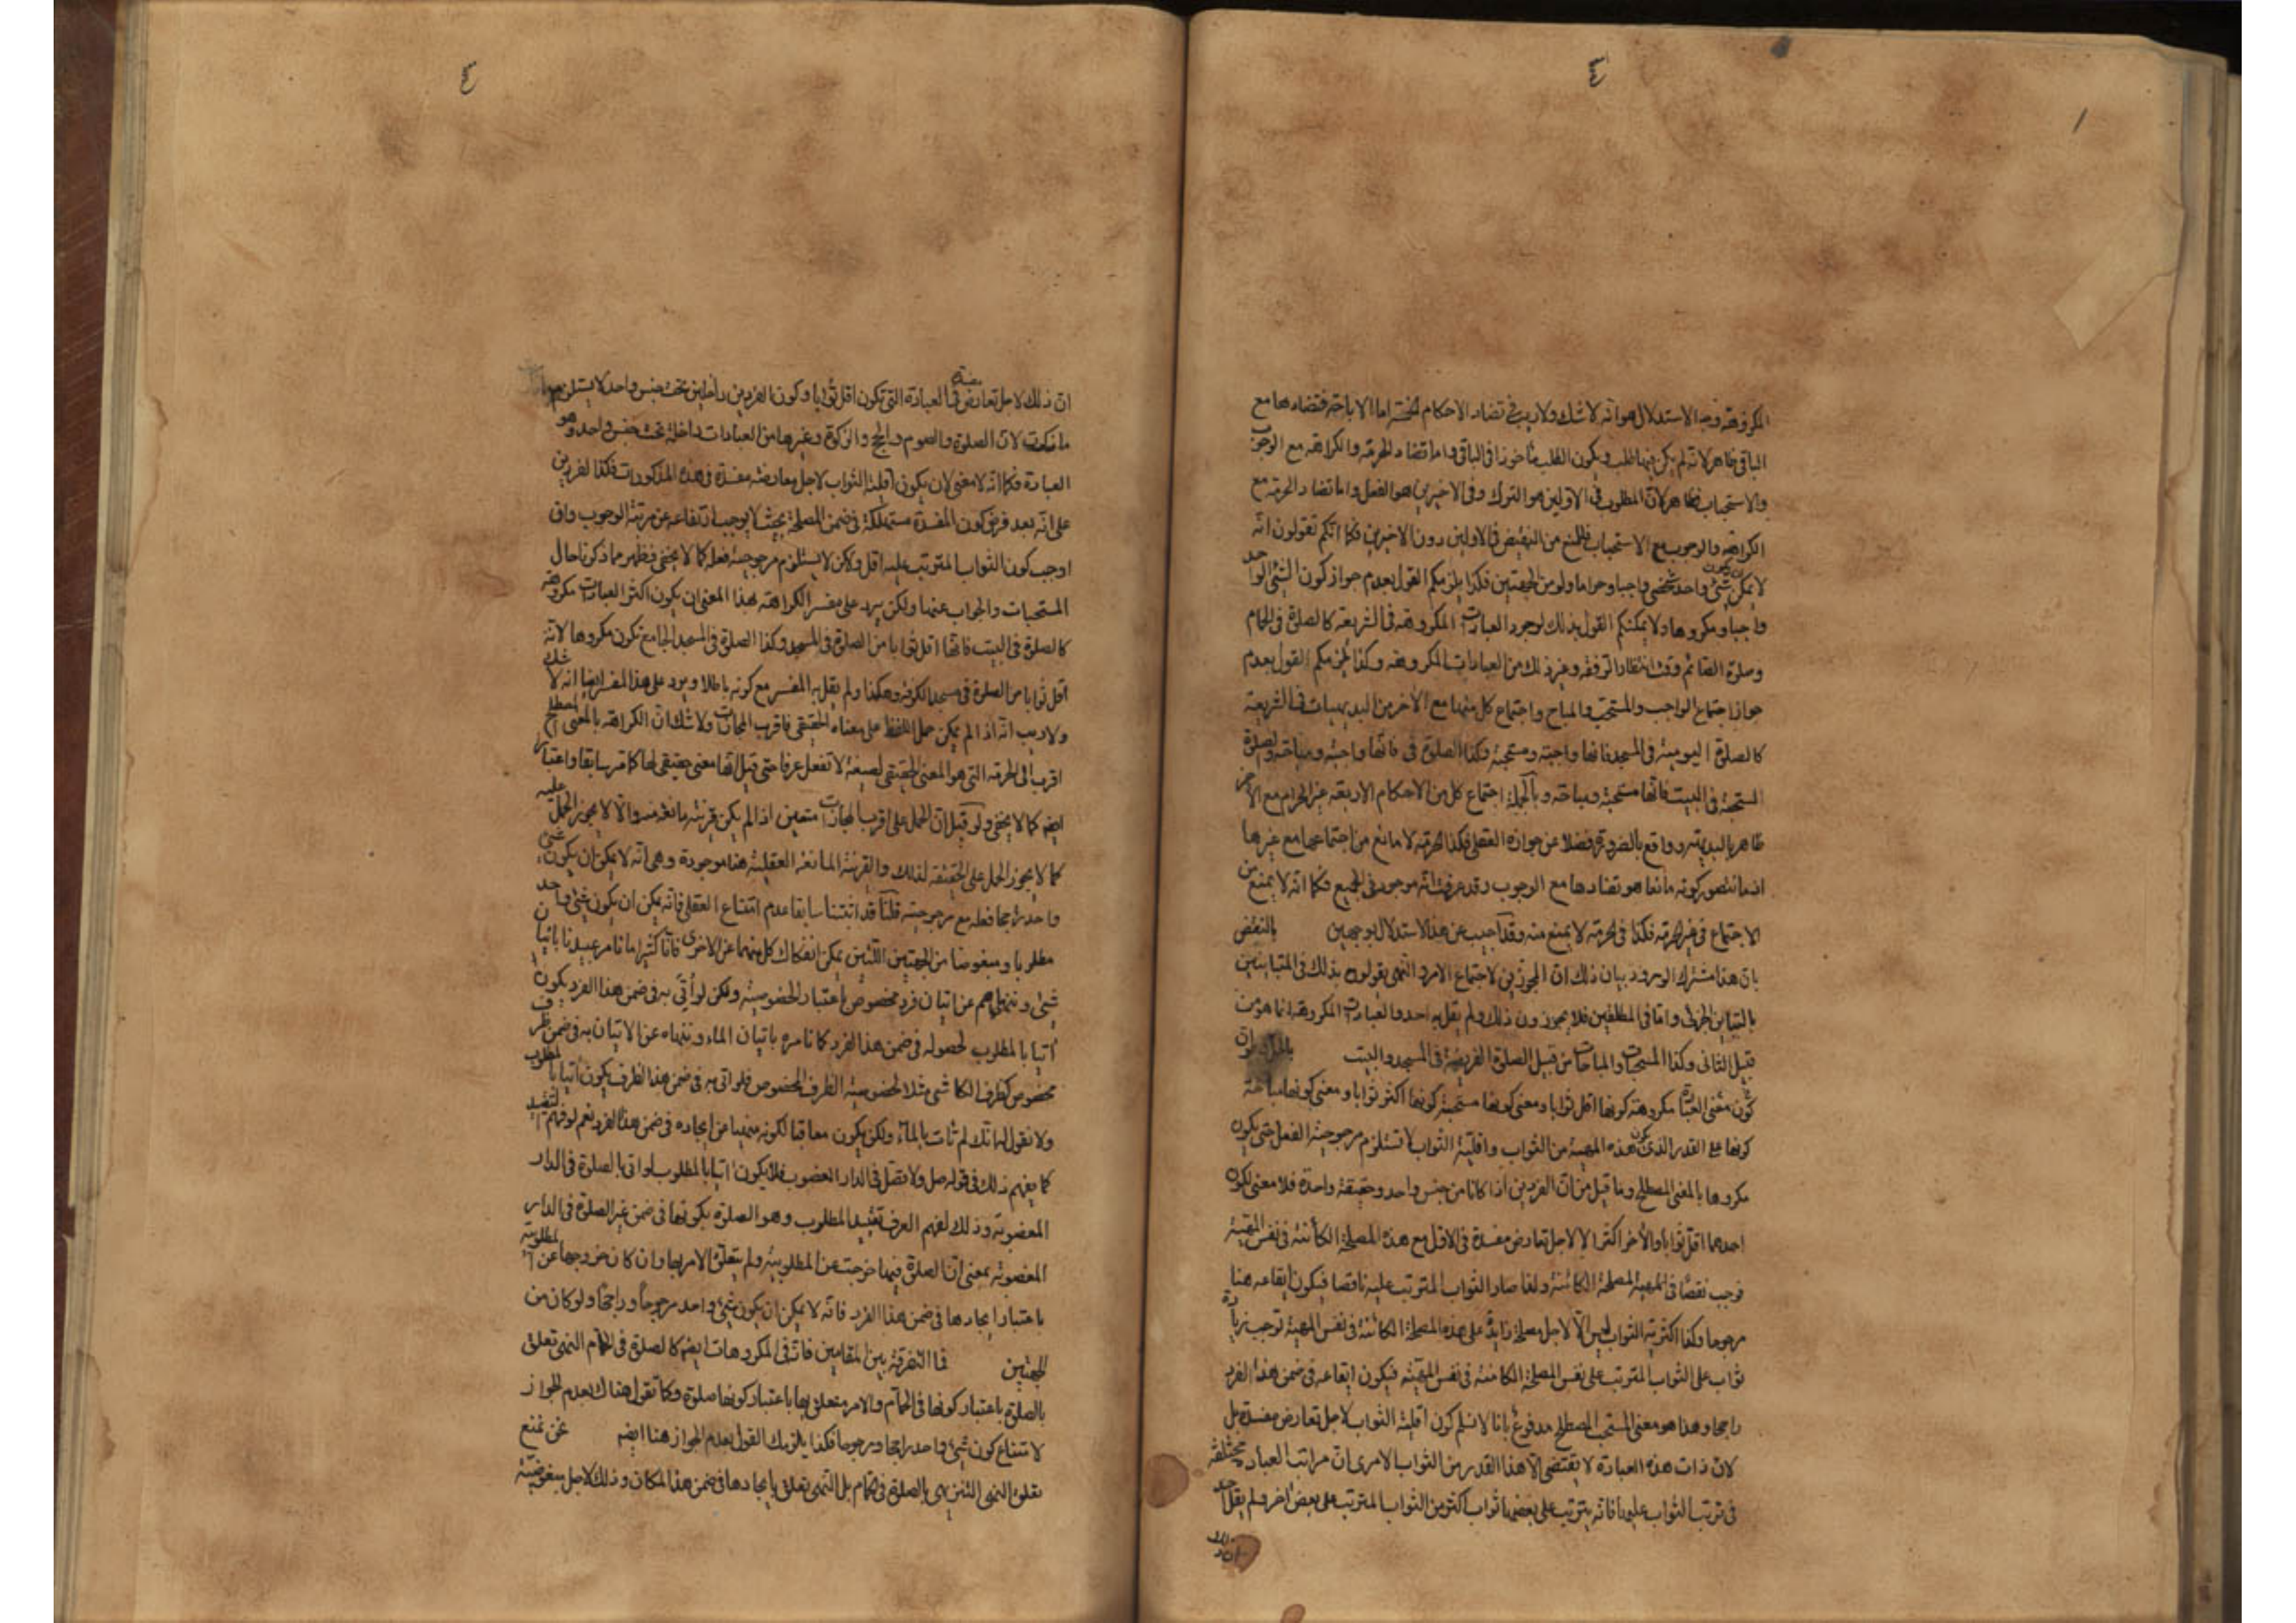 ٤
المكروهة وجه الاستدلال هو انه لا شك ولا ريب في تضاد الاحكام الخمسة اما الاباحة فتضادها مع
الباقي ظاهر لانه لم يكن فيها طلب ويكون الطلب مأخوذا في الباقي واما تضاد الحرمة والكراهة مع الوجوب
والاستحباب فظاهر لان المطلوب في الاولين هو الترك وفي الاخيرين هو الفعل واما تضاد الحرمة مع
الكراهة والوجوب مع الاستحباب فللمنع من النقيض في الاولين دون الاخيرين فكما انكم تقولون انه
لا يمكن ان يكون شئ واحد شخصي واجبا وحراما ولو من الجهتين فكذا يلزمكم القول بعدم جواز كون الشئ الواحد
واجبا ومكروها ولا يمكنكم القول بذلك لوجود العبادات المكروهة في الشريعة كالصلوة في الحمام
وصلوة الصائم وقت انتظار الرفقة وغير ذلك من العبادات المكروهة وكذا يلزمكم القول بعدم
جواز اجتماع الواجب والمستحب والمباح واجتماع كل منها مع الآخر من البديهيات في الشريعة
كالصلوة اليومية في المسجد فانها واجبة ومستحبة وكذا الصلوة في فانها واجبة ومباحة والصلوة
المستحبة في البيت فانها مستحبة ومباحة وبالجملة اجتماع كل من الاحكام الاربعة غير الحرام مع الآخر
ظاهر بالبديهة وواقع بالضرورة فضلا عن جوازه العقلي فكذا الحرمة لا مانع من اجتماعها مع غيرها
انما نتصور كونه مانعا هو تضادها مع الوجوب وقد عرفت انه موجود في الجميع فكما انه لا يمنع من
الاجتماع في غير الحرمة فكذا في الحرمة لا يمنع منه وقد اجيب عن هذا الاستدلال بوجهين بالنقض
بان هذا مشترك الورود بيان ذلك ان المجوزين لاجتماع الامر والنهي يقولون بذلك في المتباينين
بالتباين الجزئي واما في المطلقين فلا يجوزون ذلك ولم يقل به احد والعبادات المكروهة انما هو من
قبيل الثاني وكذا المستحبات والمباحات من قبيل الصلوة الفريضة في المسجد والبيت
كون معنى العبادة مكروهة كونها اقل ثوابا ومعنى كونها مستحبة كونها اكثر ثوابا ومعنى كونها مباحة
كونها على القدر الذي يكون هذه المهية من الثواب واقلية الثواب لا تستلزم مرجوحية الفعل حتى يكون
مكروها بالمعنى المصطلح وما قيل من ان الفردين اذا كانا من جنس واحد وحقيقة واحدة فلا معنى لكون
احدهما اقل ثوابا والآخر اكثر الا لاجل تعارض مفسدة في الاقل مع هذه المصلحة الكائنة في نفس المهية
فوجب نقصا في المهية المصلحة الكائنة ولهذا صار الثواب المترتب عليه ناقصا فيكون ايقاعه هنا
مرجوحا وكذا اكثرية الثواب ليس الا لاجل مصلحة زايدة على هذه المصلحة الكائنة في نفس المهية توجب زيادة
ثواب على الثواب المترتب على نفس المصلحة الكائنة في نفس المهية فيكون ايقاعه في ضمن هذا الفرد
راجحا وهذا هو معنى المستحب المصطلح مدفوع بانا لا نسلم كون اقلية الثواب لاجل تعارض مفسدة بل
لان ذات هذه العبادة لا يقتضي الا هذا القدر من الثواب الا ترى ان مراتب العبادة مختلفة
في ترتب الثواب عليها فانه يترتب على بعضها ثواب اكثر من الثواب المترتب على بعض آخر ولم يقل احد
٤
ان ذلك لاجل تعارض مفسدة في العبادة التي تكون اقل ثوابا وكون الفردين داخلين تحت جنس واحد لا يستلزم
ما ذكرت لان الصلوة والصوم والحج والزكوة وغيرها من العبادات داخلة تحت جنس واحد وهو
العبادة فكما انه لا معنى لان يكون اقلية الثواب لاجل معارضة مفسدة في هذه المذكورات فكذا الفردين
على انه بعد فرض كون المفسدة مستهلكة في ضمن المصلحة بحيث لا يوجب ارتفاعه عن مرتبة الوجوب وان
اوجب كون الثواب المترتب عليه اقل ولكن لا يستلزم مرجوحية فعله كما لا يخفى فظهر مما ذكرنا حال
المستحبات والجواب عنها ولكن يرد على مفسر الكراهة بهذا المعنى ان يكون اكثر العبادات مكروهة
كالصلوة في البيت فانها اقل ثوابا من الصلوة في المسجد وكذا الصلوة في المسجد الجامع تكون مكروها لانه
اقل ثوابا من الصلوة في مسجد الكوفة وهكذا ولم يقل به المفسر مع كونه باطلا ويرد على هذا المفسر ايضا انه لا شك
ولا ريب انه اذا لم يمكن حمل اللفظ على معناه الحقيقي فاقرب المجازات ولا شك ان الكراهة بالمعنى المصطلح
اقرب الى الحرمة التي هو المعنى الحقيقي لصيغة لا تفعل عرفا حتى قيل انها معنى حقيقي لها كما مر سابقا واعتبارا
ايضا كما لا يخفى ولو قيل ان الحمل على اقرب المجازات متعين اذا لم يكن قرينة مانعة منه والا لا يجوز الحمل عليه
كما لا يجوز الحمل على الحقيقة لذلك والقرينة المانعة العقلية هنا موجودة وهي انه لا يمكن ان يكون شئ
واحد راجحا فعله مع مرجوحيته قلنا قد اثبتنا سابقا عدم امتناع العقلي فانه يمكن ان يكون شئ واحد
مطلوبا ومبغوضا من الجهتين اللتين يمكن انفكاك كل منهما عن الاخرى فانا كثيرا ما نامر عبيدنا باتيان
شئ وننهاهم عن اتيان فرد مخصوص باعتبار الخصوصية ولكن لو أتي به في ضمن هذا الفرد يكون
آتيا بالمطلوب لحصوله في ضمن هذا الفرد كما نامره باتيان الماء وننهاه عن الاتيان به في ضمن ظرف
مخصوص كظرف الكاشي مثلا لخصوصية الظرف المخصوص فلو اتى به في ضمن هذا الظرف يكون آتيا بالمطلوب
ولا نقول له انك لم تأت بالماء ولكن يكون معاقبا لكونه منهيا عن ايجاده في ضمن هذا الفرد نعم لو فهم التقييد
كما يفهم ذلك في قوله صل ولا تصل في الدار المغصوب فلا يكون آتيا بالمطلوب لو اتى بالصلوة في الدار
المغصوبة وذلك لفهم العرف تقييد المطلوب وهو الصلوة بكونها في ضمن غير الصلوة في الدار
المغصوبة بمعنى ان الصلوة فيها خرجت عن المطلوبية ولم يتعلق الامر بها وان كان خروجها عن المطلوبية
باعتبار ايجادها في ضمن هذا الفرد فانه لا يمكن ان يكون شئ واحد مرجوحا وراجحا ولو كان من
الجهتين فما التفرقة بين المقامين فانه في المكروهات ايضا كالصلوة في الحمام النهي تعلق
بالصلوة باعتبار كونها في الحمام والامر متعلق بها باعتبار كونها صلوة وكما تقول هناك بعدم الجواز
لامتناع كون شئ واحد راجحا ومرجوحا فكذا يلزمك القول بعدم الجواز هنا ايضا نحن نمنع
تعلق النهي التنزيهي بالصلوة في الحمام بل النهي تعلق بايجادها في ضمن هذا المكان وذلك لاجل مبغوضية